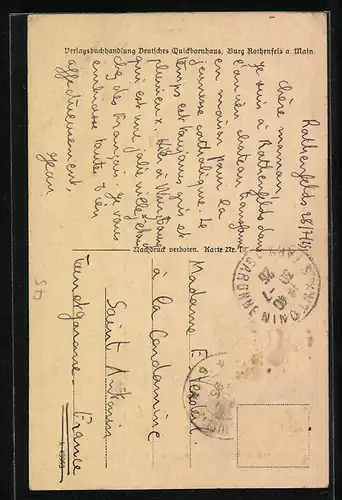 Verlagsbuchhandlung Deutsches Quickbornhaus, Burg Rothenfels a. Main
Rothenfels, 28/7/
Chère maman
Je suis à Rothenfels dans
l'ancien chateau transformé
en maison pour la
jeunesse catholique. Le
temps est toujours gris et
pluvieux. Hier à Würzbourg
qui est une jolie ville
des Français. Je vous
embrasse toute bien
affectueusement,
Jean
Nachdruck verboten. Karte Nr.
Madame
à la Condamine
Saint Antonin
Tarn et Garonne France
GARONNE